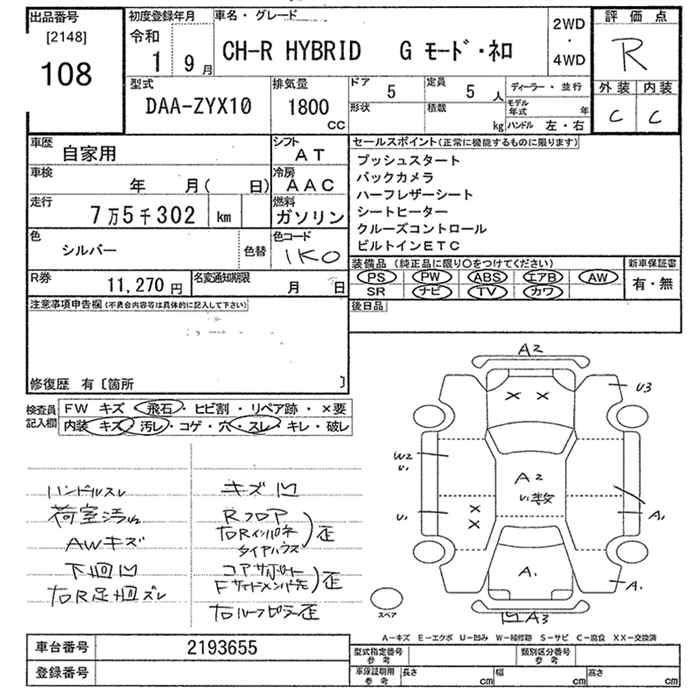 出品番号 初度登録年月 車名・グレード 評価点
[2148] 令和 2WD
108 1 9月 CH-R HYBRID G モード・ネロ ・ R
4WD
型式 排気量 ドア 5 定員 5人 ディーラー・並行 外装 内装
DAA-ZYX10 1800 CC 形状 積載 kg モデル年式 年 C C
ハンドル 左・右
車歴 自家用 シフト AT セールスポイント(正常に機能するものに限ります)
車検 年 月( 日) 冷房 AAC プッシュスタート
バックカメラ
走行 7万5千302 km 燃料 ガソリン ハーフレザーシート
シートヒーター
色 シルバー 色替 色コード 1K0 クルーズコントロール
ビルトインETC
R券 11,270円 名変通知期限 月 日 装備品(純正品に限り○をつけてください) 新車保証書
PS PW ABS エアB AW 有・無
SR ナビ TV カワ
注意事項申告欄(不具合内容等は具体的に記入して下さい) 後日品
修復歴 有〔箇所 〕
検査員記入欄 FW キズ・飛石・ヒビ割・リペア跡・×要
内装 キズ・汚レ・コゲ・穴・スレ・キレ・破レ
ハンドルスレ キズ凹
荷室汚れ Rフロア
AWキズ 右Rインパネ 歪
タイヤハウス
下回凹 コアサポート
右R足回ズレ Fサイドメンバー先 歪
右ルーフピラー歪
A2
U3
W2
U1
A2
U1数
U1
A1
A1
A1
スペア
A3
A-キズ E-エクボ U-凹み W-補修跡 S-サビ C-腐食 XX-交換済
車台番号 2193655 型式指定番号 参考 類別区分番号 参考
登録番号 車庫証明用 参考 長さ cm 幅 cm 高さ cm